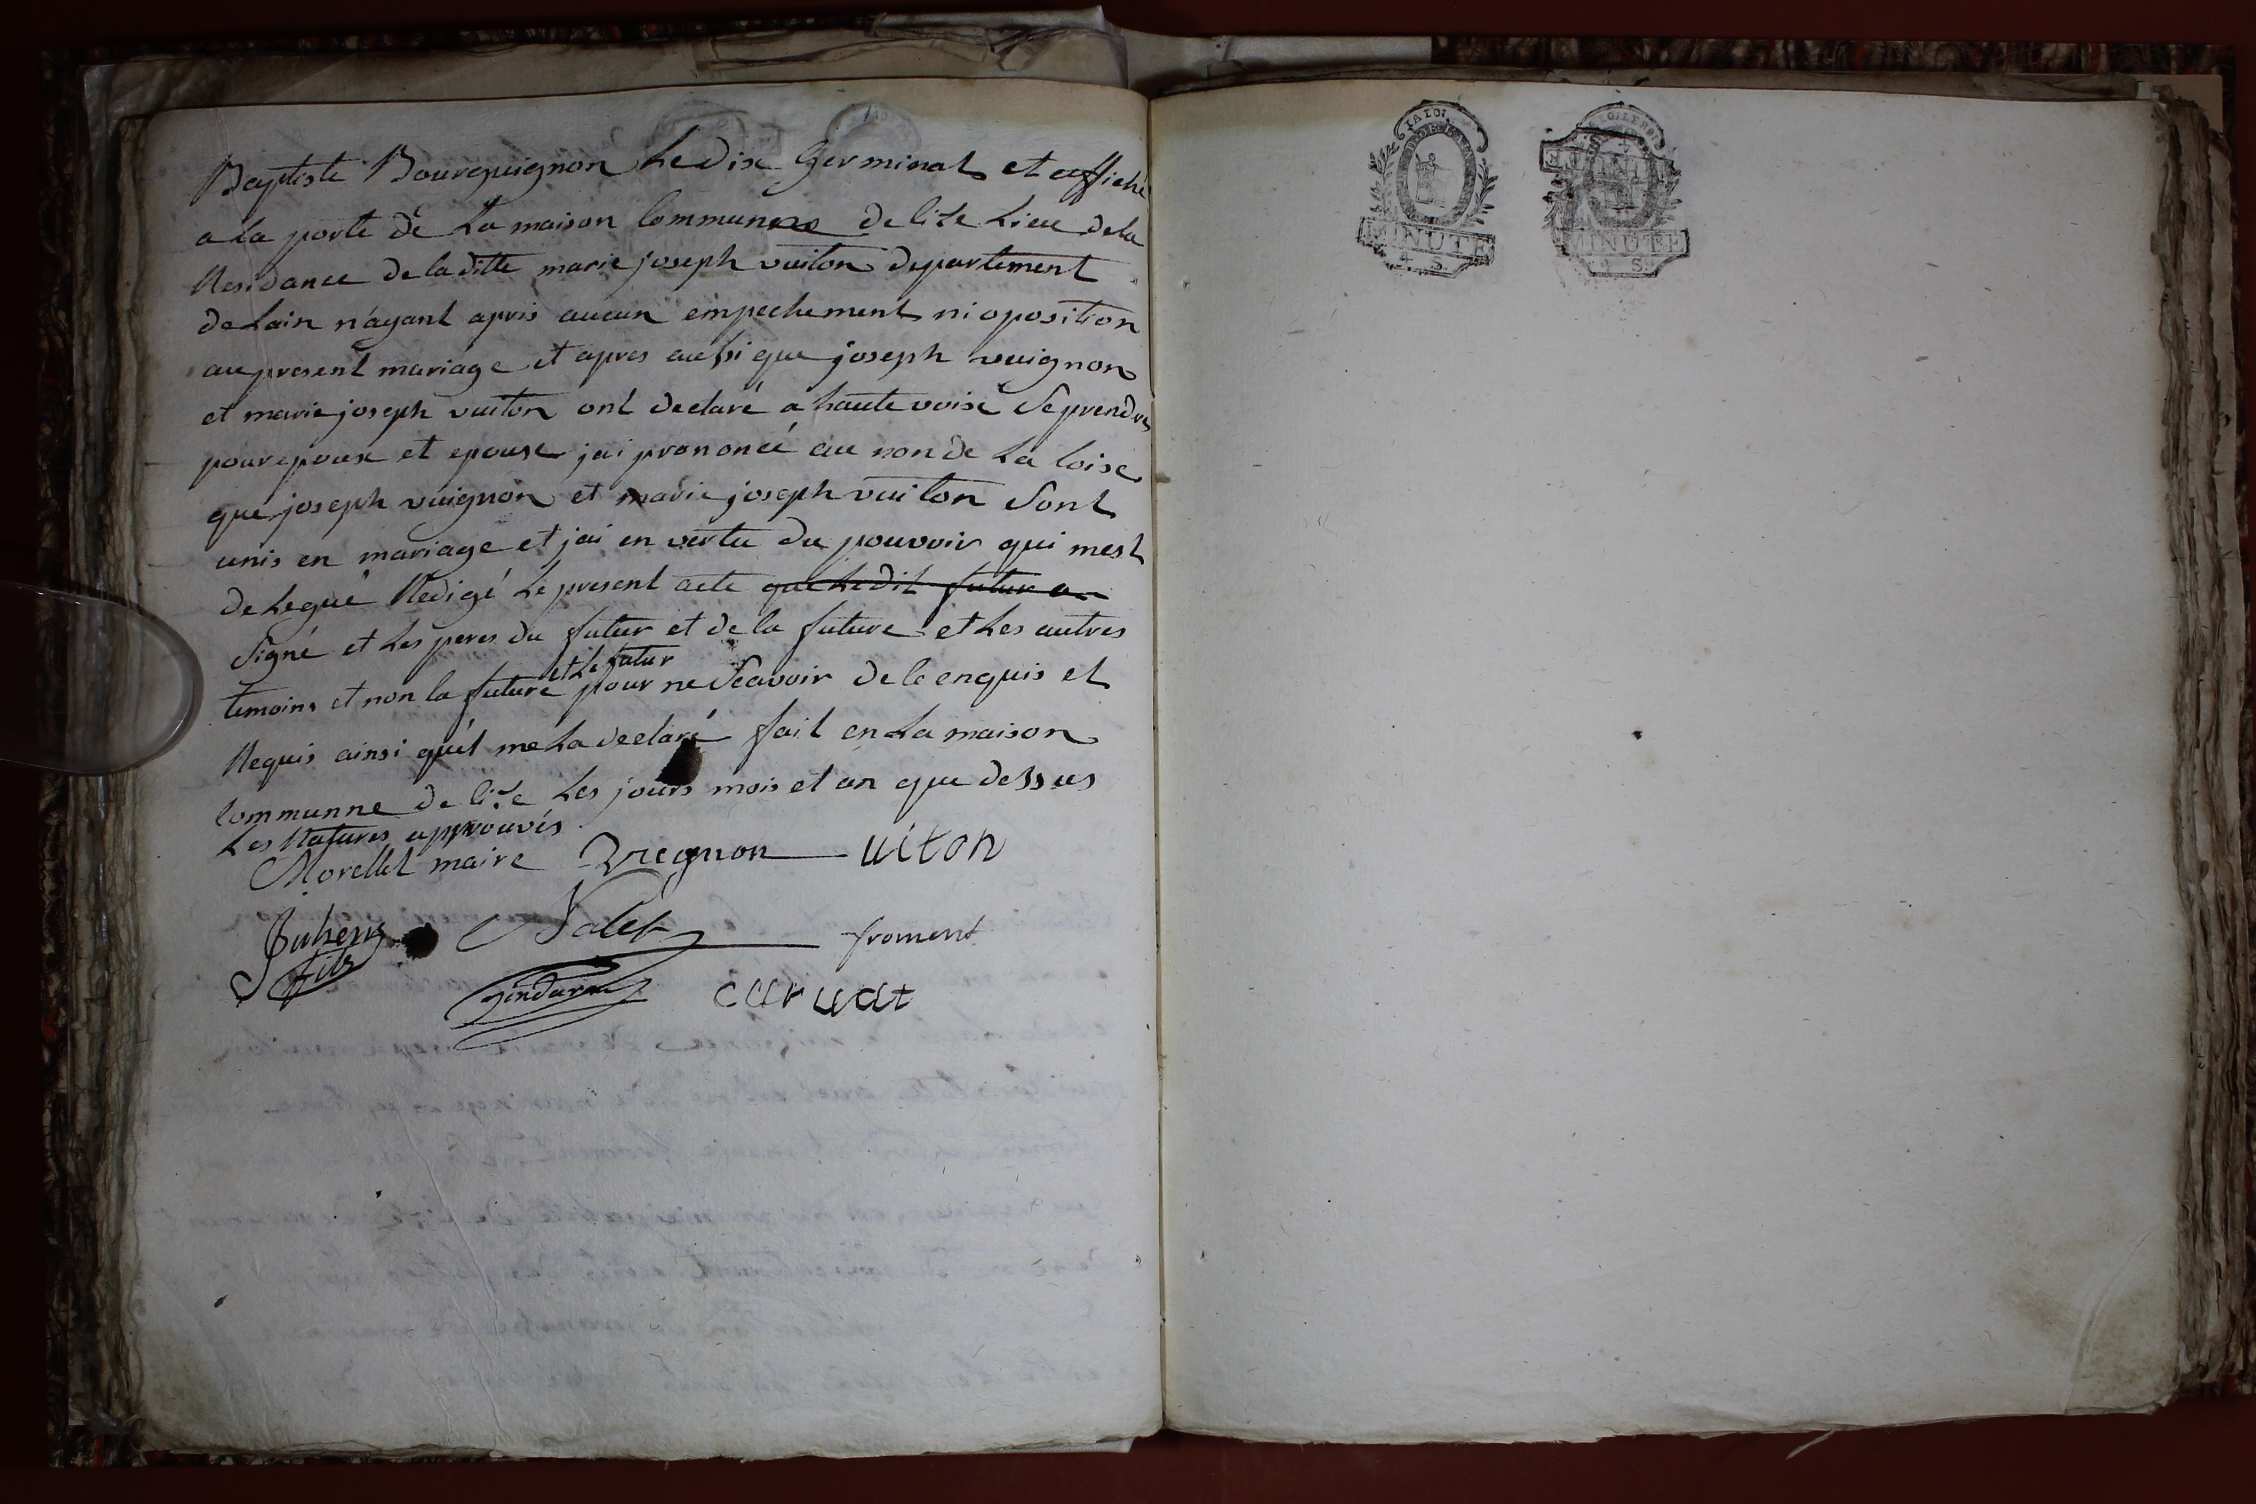 Baptiste Bourguignon Le dix Germinal et affiché
a La porte de La maison Communne de lize Lieu de la
Residance de la ditte marie joseph vuiton departement
de Lain n'ayant apris aucun empechement ni oposition
au present mariage et apres aussi que joseph vuignon
et marie joseph vuiton ont declaré a haute voise Se prendre
pour epoux et epouse jai prononcé au non de La loise
que joseph vuignon et marie joseph vuiton Sont
unis en mariage et jai en vertu du pouvoir qui mest
delegué Redigé Le present acte que Ledit futur a
Signé et Les peres du futur et de la future et Les autres
temoins et non la future et Le futur pour ne Scavoir de le enquis et
Requis ainsi quil me La declaré fait en La maison
Communne de lize Les jours mois et an que dessus
Les Ratures approuvés
Morellet maire Vuignon uiton
fils froment
caruat
LA LOI
MINUTE MINUTE
4 S. S.